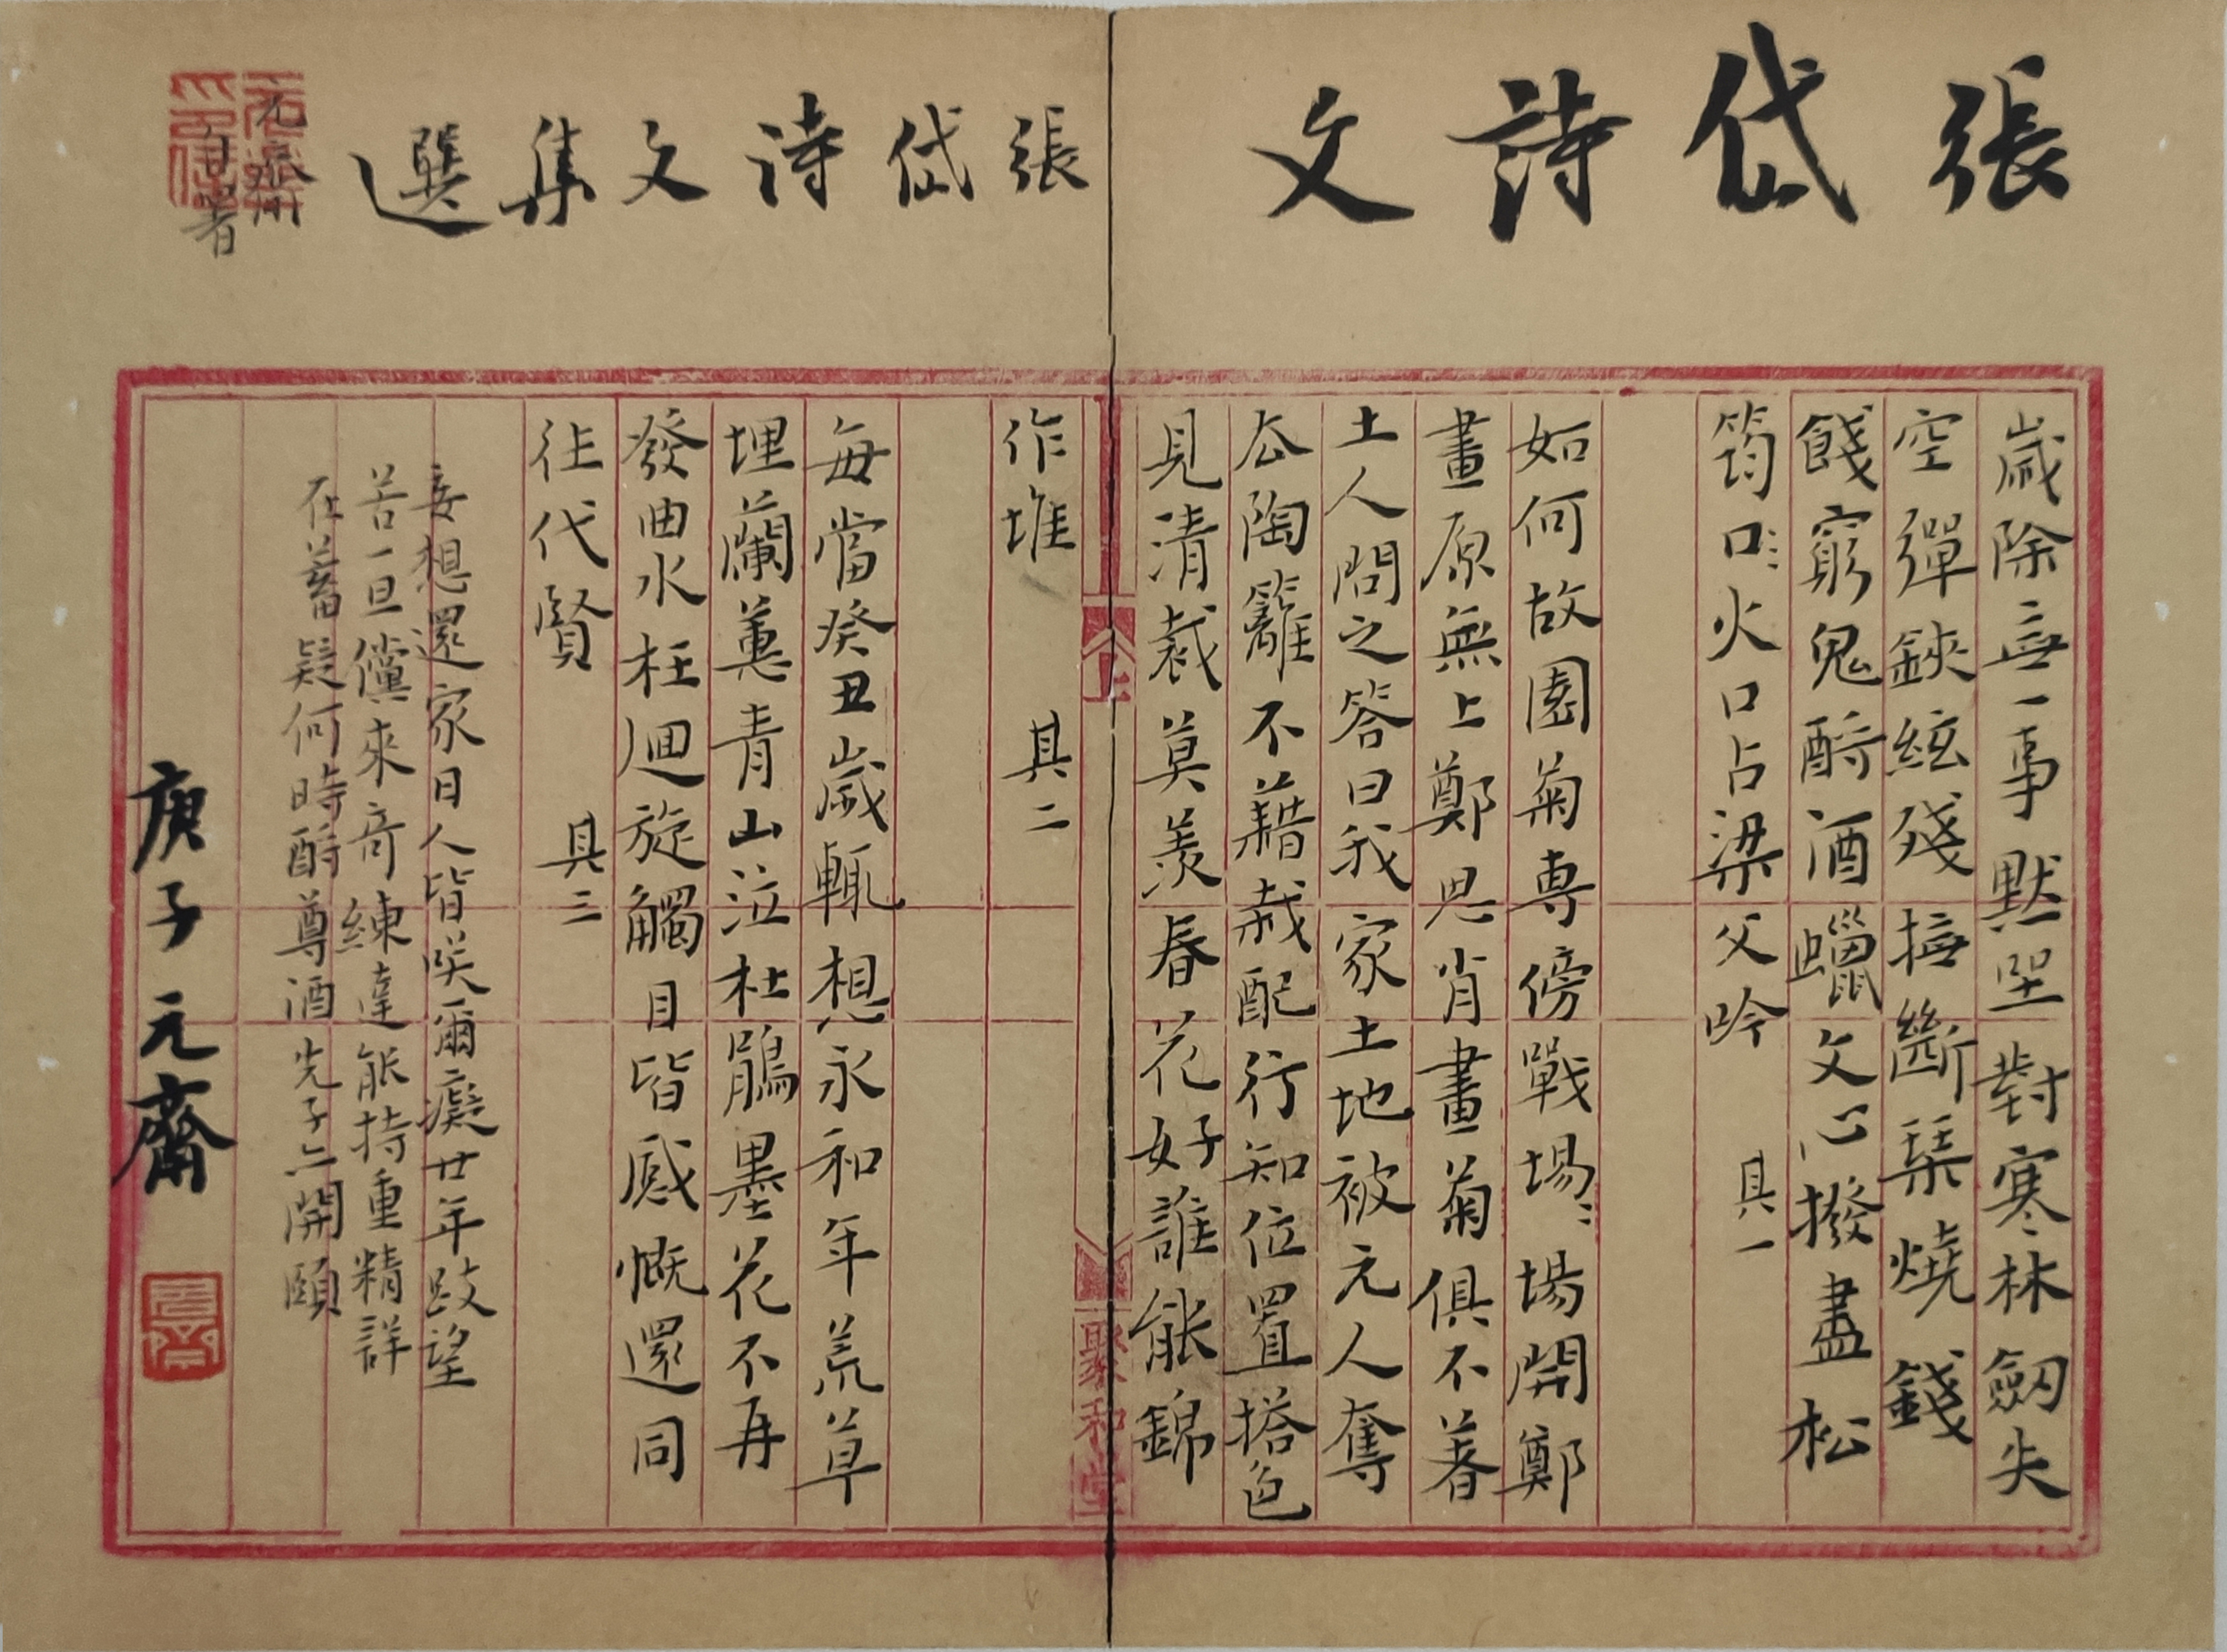 張岱詩文
歲除無一事默坐對寒林劒失
空彈鋏絃殘撫斷琹燒錢
餞窮鬼酹酒蠟文心撥盡松
筠口〻火口占梁父吟 其一
如何故園菊專傍戰場〻場開鄭
畫原無上鄭思肖畫菊俱不著
土人問之答曰我家土地被元人奪
去陶籬不藉栽配行知位置搭色
見清裁莫羨春花好誰能錦
聚和堂
作堆 其二
張岱詩文集選
元齋自署
每當癸丑歲輒想永和年荒草
埋蘭蕙青山泣杜鵑墨花不再
發曲水枉迴旋觸目皆感慨還同
往代賢 其三
妄想還家日人皆笑爾癡廿年跂望
苦一旦儻來奇練達能持重精詳
在蓄疑何時酹尊酒先子亦開頤
庚子元齋